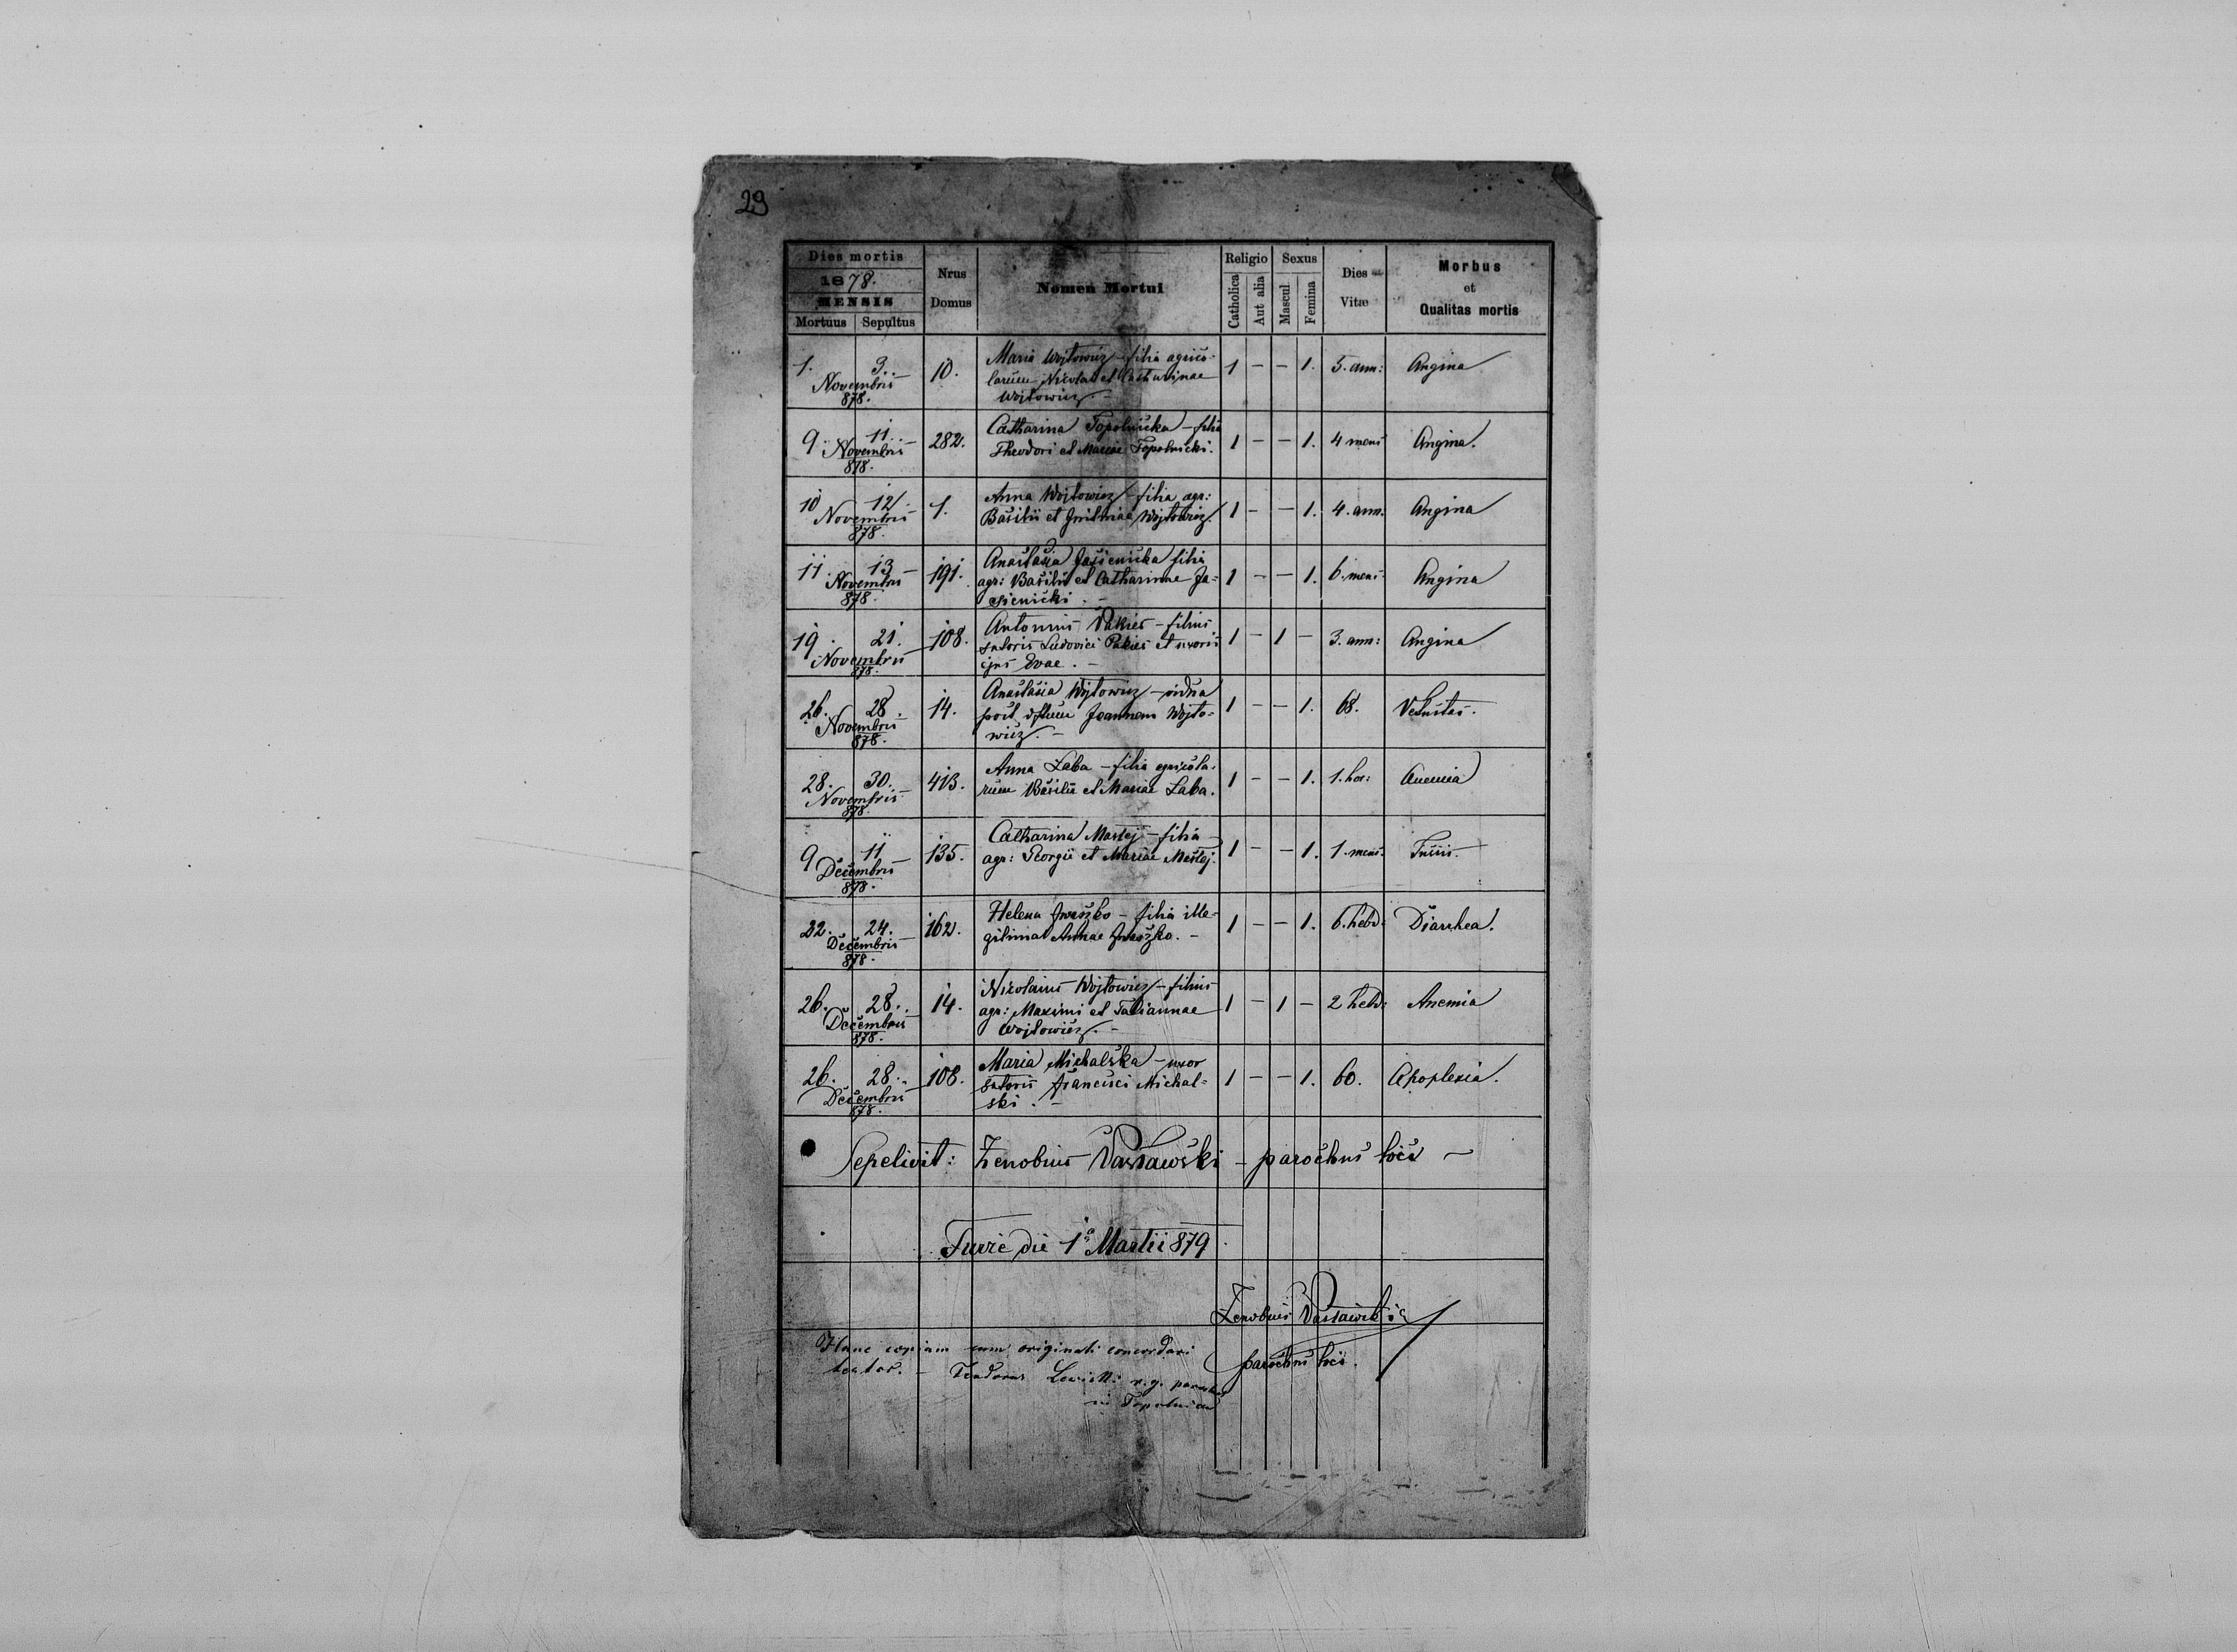 29
Dies mortis
1878.
MENSIS
Mortuus Sepultus
Nrus
Domus
Nomen Mortui
Religio
Catholica
Aut alia
Sexus
Mascul
Femina
Dies
Vitæ
Morbus
et
Qualitas mortis
1. 3. Novembris 878. 10. Maria Wojtowicz – filia agrico-
larum Nicolai et Catharinae
Wojtowicz. –
1 – – 1. 5. ann: Angina
9. 11. Novembris 878. 282. Catharina Topolnicka – filia
Theodori et Mariae Topolnicki.
1 – – 1. 4 mens Angina.
10 12. Novembris 878. 1. Anna Wojtowicz – filia agr:
Basilii et Wojtowicz.
1 – – 1. 4. ann. Angina
11. 13 Novembris 878. 191. Anastasia Jasienicka filia
agr: Basilii et Catharinae Ja-
sienicki. –
1 – – 1. 6. mens. Angina
19. 21. Novembris 878. 108. Antonius Pakies – filius
sutoris Ludovici Pakies et uxoris
ejus Evae. –
1 – 1 – 3. ann: Angina
26. 28. Novembris 878. 14. Anastasia Wojtowicz – vidua
post Joannem Wojto-
wicz. –
1 – – 1. 68. Vetustas.
28. 30. Novembris 878. 413. Anna Łaba – filia agricola-
rum Basilii et Mariae Łaba.
1 – – 1. 1. hor: Anemia
9 11 Decembris 878. 135. Catharina Mastej – filia
agr: Georgii et Mariae Mastej.
1 – – 1. 1. mens. Tussis.
22. 24. Decembris 878. 162. Helena Iwaszko – filia ille-
gitima Annae Iwaszko. –
1 – – 1. 6. hebd: Diarrhea.
26. 28. Decembris 878. 14. Nicolaus Wojtowicz – filius
agr: Maximi et Tatiannae
Wojtowicz. –
1 – 1 – 2 hebd: Anemia
26. 28. Decembris 878. 108. Maria Michalska – uxor
sutoris Francisci Michal-
ski. –
1 – – 1. 60. Apoplexia.
Sepelivit: Zenobius – parochus loci –
Turze die 1a Martii 879
Zenobius
parochus loci.
Hanc copiam cum originali concordari
testor. – Teodorus Lewicki r. g. parochus
in Topolnica